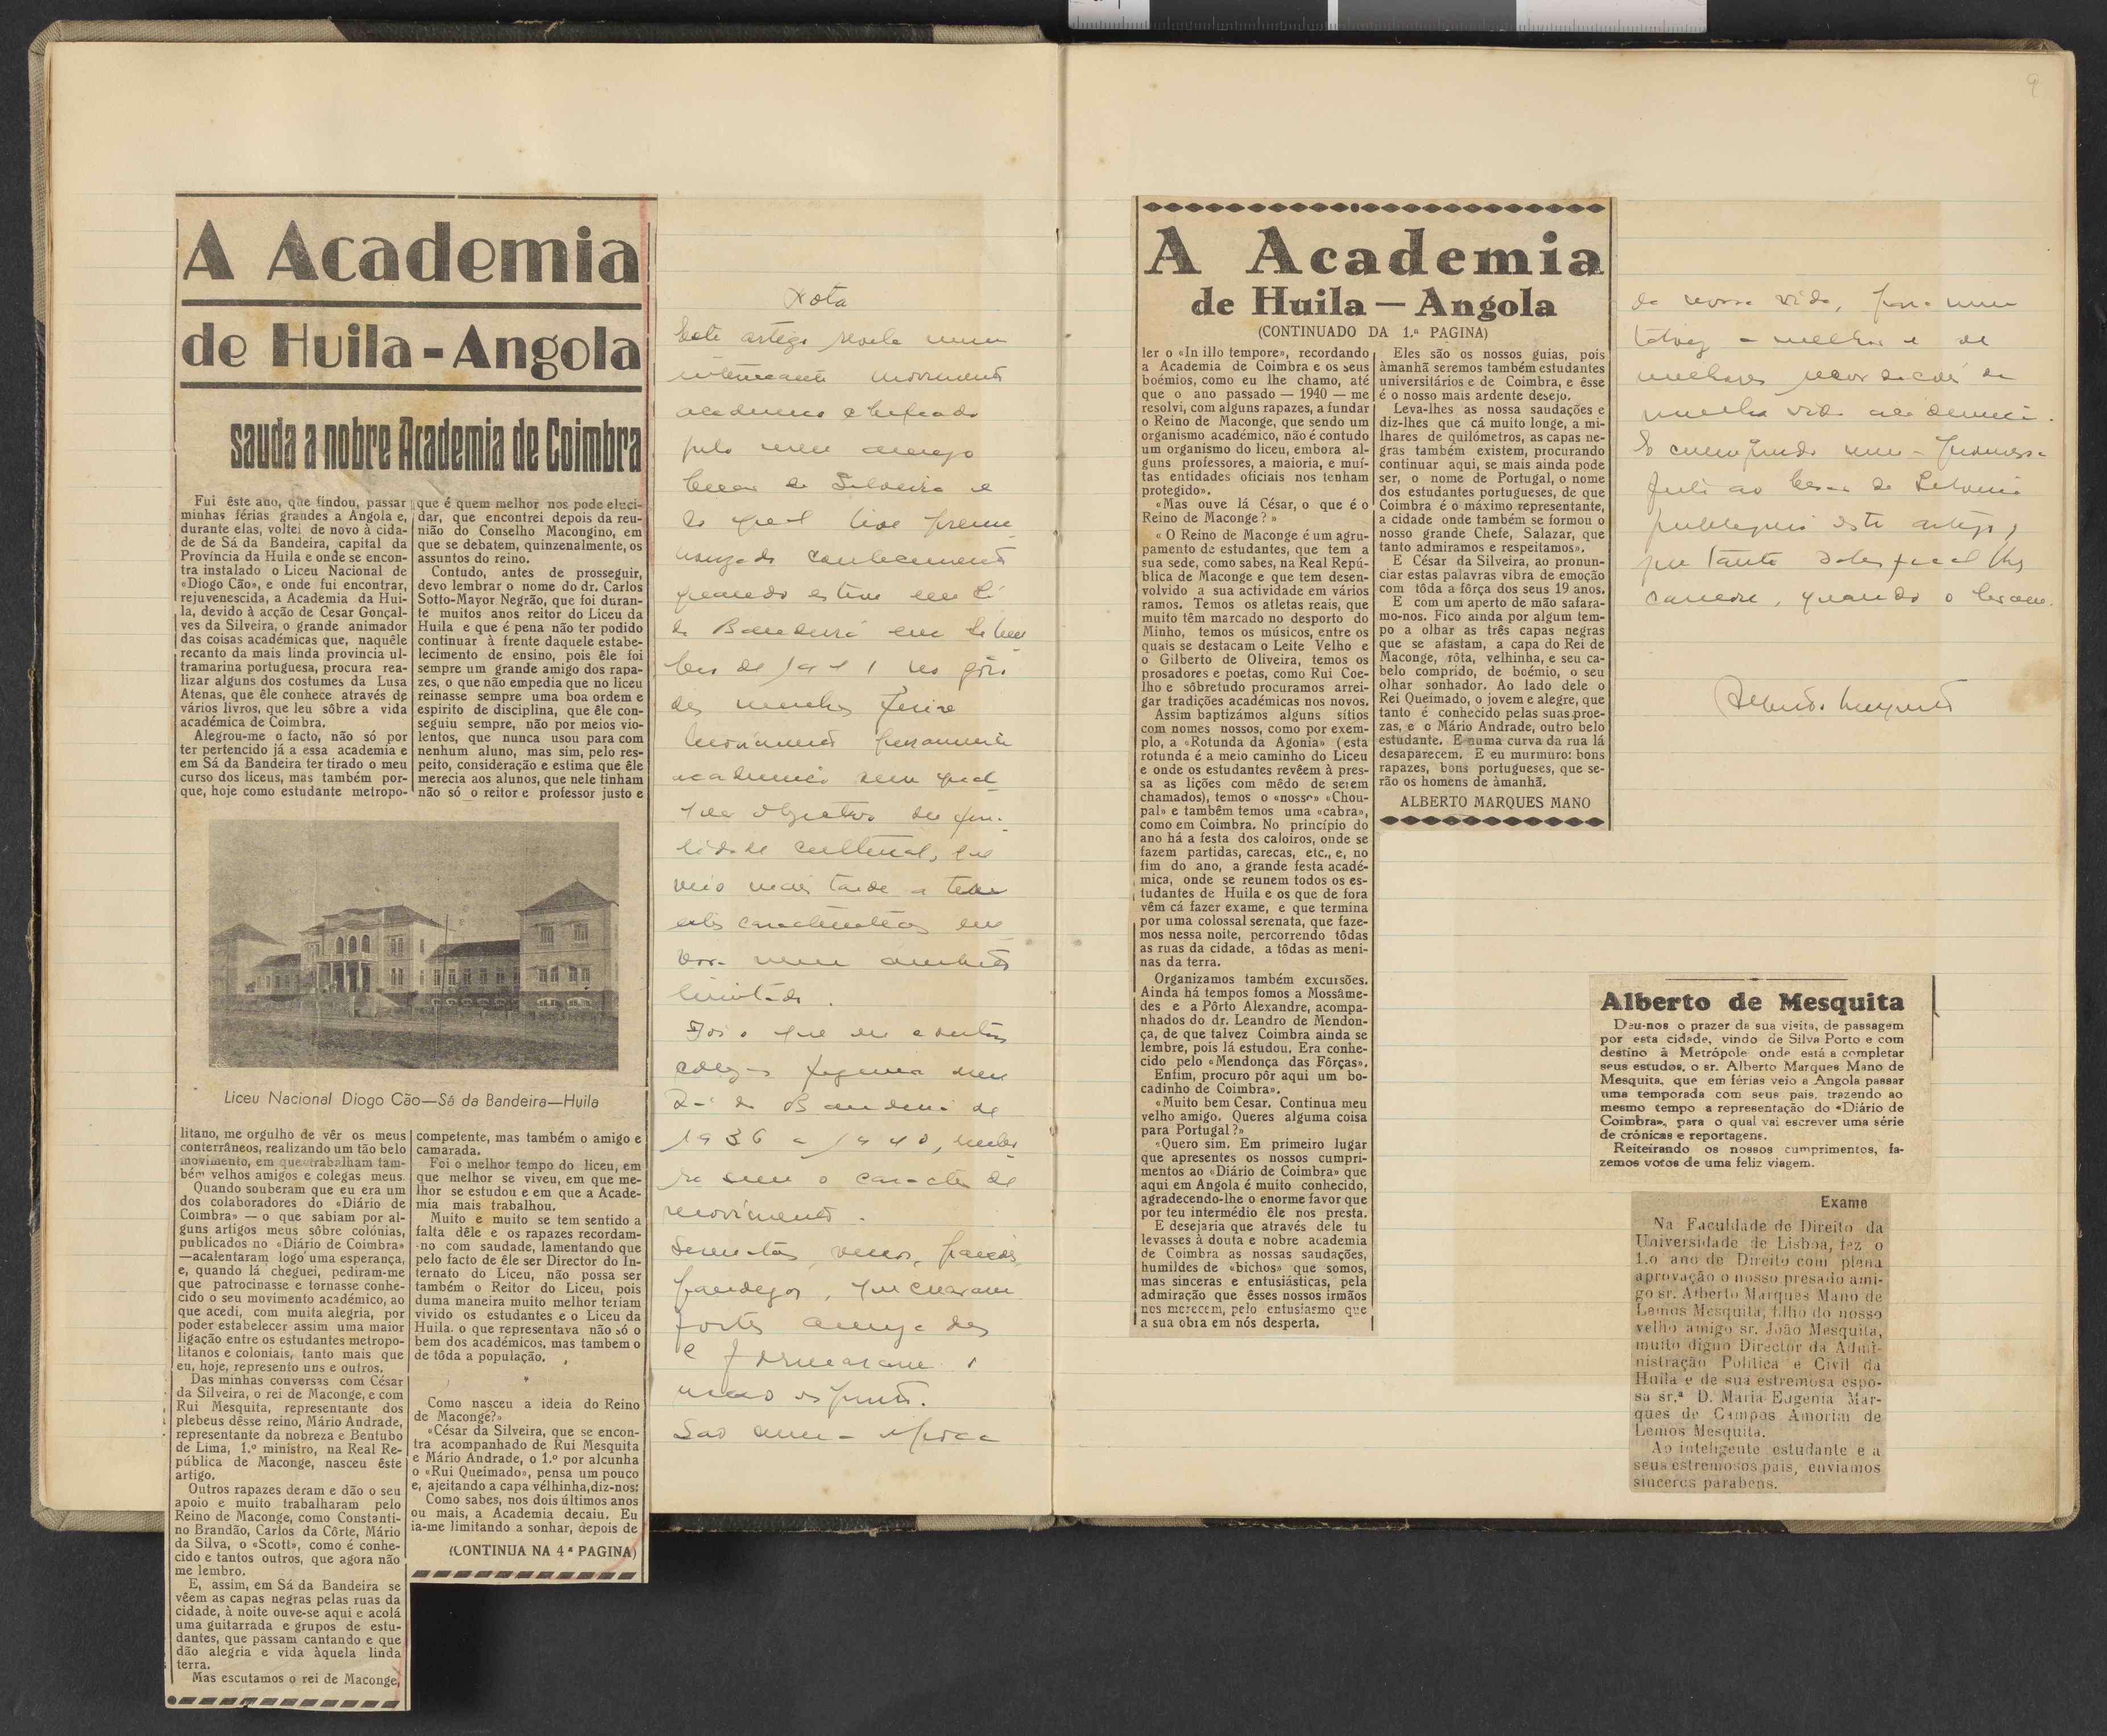 A Academia
de Huila - Angola
sauda a nobre Academia de Coimbra
Fui êste ano, que findou, passar
minhas férias grandes a Angola e,
durante elas, voltei de novo à cida-
de de Sá da Bandeira, capital da
Província da Huila e onde se encon-
tra instalado o Liceu Nacional de
«Diogo Cão», e onde fui encontrar,
rejuvenescida, a Academia da Hui-
la, devido à acção de Cesar Gonçal-
ves da Silveira, o grande animador
das coisas académicas que, naquêle
recanto da mais linda provincia ul-
tramarina portuguesa, procura rea-
lizar alguns dos costumes da Lusa
Atenas, que êle conhece através de
vários livros, que leu sôbre a vida
académica de Coimbra.
Alegrou-me o facto, não só por
ter pertencido já a essa academia e
em Sá da Bandeira ter tirado o meu
curso dos liceus, mas também por-
que, hoje como estudante metropo-
Liceu Nacional Diogo Cão—Sá da Bandeira—Huila
litano, me orgulho de vêr os meus
conterrâneos, realizando um tão belo
movimento, em que trabalham tam-
bém velhos amigos e colegas meus.
Quando souberam que eu era um
dos colaboradores do «Diário de
Coimbra» — o que sabiam por al-
guns artigos meus sôbre colónias,
publicados no «Diário de Coimbra»
—acalentaram logo uma esperança,
e, quando lá cheguei, pediram-me
que patrocinasse e tornasse conhe-
cido o seu movimento académico, ao
que acedi, com muita alegria, por
poder estabelecer assim uma maior
ligação entre os estudantes metropo-
litanos e coloniais, tanto mais que
eu, hoje, represento uns e outros.
Das minhas conversas com César
da Silveira, o rei de Maconge, e com
Rui Mesquita, representante dos
plebeus dêsse reino, Mário Andrade,
representante da nobreza e Bentubo
de Lima, 1.º ministro, na Real Re-
pública de Maconge, nasceu êste
artigo.
Outros rapazes deram e dão o seu
apoio e muito trabalharam pelo
Reino de Maconge, como Constanti-
no Brandão, Carlos da Côrte, Mário
da Silva, o «Scott», como é conhe-
cido e tantos outros, que agora não
me lembro.
E, assim, em Sá da Bandeira se
vêem as capas negras pelas ruas da
cidade, à noite ouve-se aqui e acolá
uma guitarrada e grupos de estu-
dantes, que passam cantando e que
dão alegria e vida àquela linda
terra.
Mas escutamos o rei de Maconge,
que é quem melhor nos pode eluci-
dar, que encontrei depois da reu-
nião do Conselho Macongino, em
que se debatem, quinzenalmente, os
assuntos do reino.
Contudo, antes de prosseguir,
devo lembrar o nome do dr. Carlos
Sotto-Mayor Negrão, que foi duran-
te muitos anos reitor do Liceu da
Huila e que é pena não ter podido
continuar à frente daquele estabe-
lecimento de ensino, pois êle foi
sempre um grande amigo dos rapa-
zes, o que não empedia que no liceu
reinasse sempre uma boa ordem e
espirito de disciplina, que êle con-
seguiu sempre, não por meios vio-
lentos, que nunca usou para com
nenhum aluno, mas sim, pelo res-
peito, consideração e estima que êle
merecia aos alunos, que nele tinham
não só o reitor e professor justo e
competente, mas também o amigo e
camarada.
Foi o melhor tempo do liceu, em
que melhor se viveu, em que me-
lhor se estudou e em que a Acade-
mia mais trabalhou.
Muito e muito se tem sentido a
falta dêle e os rapazes recordam-
-no com saudade, lamentando que
pelo facto de êle ser Director do In-
ternato do Liceu, não possa ser
também o Reitor do Liceu, pois
duma maneira muito melhor teriam
vivido os estudantes e o Liceu da
Huila. o que representava não só o
bem dos académicos, mas tambem o
de tôda a população.
*
Como nasceu a ideia do Reino
de Maconge?»
«César da Silveira, que se encon-
tra acompanhado de Rui Mesquita
e Mário Andrade, o 1.º por alcunha
o «Rui Queimado», pensa um pouco
e, ajeitando a capa vélhinha, diz-nos:
Como sabes, nos dois últimos anos
ou mais, a Academia decaiu. Eu
ia-me limitando a sonhar, depois de
(CONTINUA NA 4.ª PAGINA)
Nota
Este artigo revela um
interessante movimento
academico chefiado
pelo meu amigo
Cesar da Silveira e
do qual tive
conhecimento
quando estive em Sá
da Bandeira em
de 1941 no gôzo
das minhas ferias
Movimento
academico sem qual
quer objectivo de
cultural, que
veio mais tarde a ter
estas caracteristicas em
bora num ambito
limitado.
Foi o que eu e outros
colegas fizemos em
Sá da Bandeira de
1936 a 1940, embo
ra sem o caracter de
movimento.
Serenatas,
fortes amizades
e formaram o
nosso espirito.
São uma epoca
9
A Academia
de Huila — Angola
(CONTINUADO DA 1.ª PAGINA)
ler o «In illo tempore», recordando
a Academia de Coimbra e os seus
boémios, como eu lhe chamo, até
que o ano passado — 1940 — me
resolvi, com alguns rapazes, a fundar
o Reino de Maconge, que sendo um
organismo académico, não é contudo
um organismo do liceu, embora al-
guns professores, a maioria, e muí-
tas entidades oficiais nos tenham
protegido».
«Mas ouve lá César, o que é o
Reino de Maconge?»
«O Reino de Maconge é um agru-
pamento de estudantes, que tem a
sua sede, como sabes, na Real Repú-
blica de Maconge e que tem desen-
volvido a sua actividade em vários
ramos. Temos os atletas reais, que
muito têm marcado no desporto do
Minho, temos os músicos, entre os
quais se destacam o Leite Velho e
o Gilberto de Oliveira, temos os
prosadores e poetas, como Rui Coe-
lho e sôbretudo procuramos arrei-
gar tradições académicas nos novos.
Assim baptizámos alguns sítios
com nomes nossos, como por exem-
plo, a «Rotunda da Agonia» (esta
rotunda é a meio caminho do Liceu
e onde os estudantes revêem à pres-
sa as lições com mêdo de serem
chamados), temos o «nosso» «Chou-
pal» e também temos uma «cabra»,
como em Coimbra. No princípio do
ano há a festa dos caloiros, onde se
fazem partidas, carecas, etc., e, no
fim do ano, a grande festa acadé-
mica, onde se reunem todos os es-
tudantes de Huila e os que de fora
vêm cá fazer exame, e que termina
por uma colossal serenata, que faze-
mos nessa noite, percorrendo tôdas
as ruas da cidade, a tôdas as meni-
nas da terra.
Organizamos também excursões.
Ainda há tempos fomos a Mossâme-
des e a Pôrto Alexandre, acompa-
nhados do dr. Leandro de Mendon-
ça, de que talvez Coimbra ainda se
lembre, pois lá estudou. Era conhe-
cido pelo «Mendonça das Fôrças».
Enfim, procuro pôr aqui um bo-
cadinho de Coimbra».
«Muito bem Cesar. Continua meu
velho amigo. Queres alguma coisa
para Portugal?»
«Quero sim. Em primeiro lugar
que apresentes os nossos cumpri-
mentos ao «Diário de Coimbra» que
aqui em Angola é muito conhecido,
agradecendo-lhe o enorme favor que
por teu intermédio êle nos presta.
E desejaria que através dele tu
levasses à douta e nobre academia
de Coimbra as nossas saudações,
humildes de «bichos» que somos,
mas sinceras e entusiásticas, pela
admiração que êsses nossos irmãos
nos merecem, pelo entusiasmo que
a sua obra em nós desperta.
Eles são os nossos guias, pois
àmanhã seremos também estudantes
universitários e de Coimbra, e êsse
é o nosso mais ardente desejo.
Leva-lhes as nossa saudações e
diz-lhes que cá muito longe, a mi-
lhares de quilómetros, as capas ne-
gras também existem, procurando
continuar aqui, se mais ainda pode
ser, o nome de Portugal, o nome
dos estudantes portugueses, de que
Coimbra é o máximo representante,
a cidade onde também se formou o
nosso grande Chefe, Salazar, que
tanto admiramos e respeitamos».
E César da Silveira, ao pronun-
ciar estas palavras vibra de emoção
com tôda a fôrça dos seus 19 anos.
E com um aperto de mão safara-
mo-nos. Fico ainda por algum tem-
po a olhar as três capas negras
que se afastam, a capa do Rei de
Maconge, rôta, velhinha, e seu ca-
belo comprido, de boémio, o seu
olhar sonhador. Ao lado dele o
Rei Queimado, o jovem e alegre, que
tanto é conhecido pelas suas proe-
zas, e o Mário Andrade, outro belo
estudante. E numa curva da rua lá
desaparecem. E eu murmuro: bons
rapazes, bons portugueses, que se-
rão os homens de àmanhã.
ALBERTO MARQUES MANO
da nossa vida, para mim
talvez a melhor e de
melhores recordações da
minha vida academica.
E cumprindo uma promessa
feita ao Cesar da Silveira
publiquei este artigo,
Alberto Mesquita
Alberto de Mesquita
Deu-nos o prazer da sua visita, de passagem
por esta cidade, vindo de Silva Porto e com
destino à Metrópole onde está a completar
seus estudos, o sr. Alberto Marques Mano de
Mesquita, que em férias veio a Angola passar
uma temporada com seus pais, trazendo ao
mesmo tempo a representação do «Diário de
Coimbra», para o qual vai escrever uma série
de crónicas e reportagens.
Reiteirando os nossos cumprimentos, fa-
zemos votos de uma feliz viagem.
Exame
Na Faculdade de Direito da
Universidade de Lisboa, fez o
1.o ano de Direito com plena
aprovação o nosso presado ami-
go sr. Alberto Marques Mano de
Lemos Mesquita, filho do nosso
velho amigo sr. João Mesquita,
muito digno Director da Admi-
nistração Politica e Civil da
Huíla e de sua estremosa espo-
sa sr.ª D. Maria Eugenia Mar-
ques de Campos Amorim de
Lemos Mesquita.
Ao inteligente estudante e a
seus estremosos pais, enviamos
sinceros parabens.